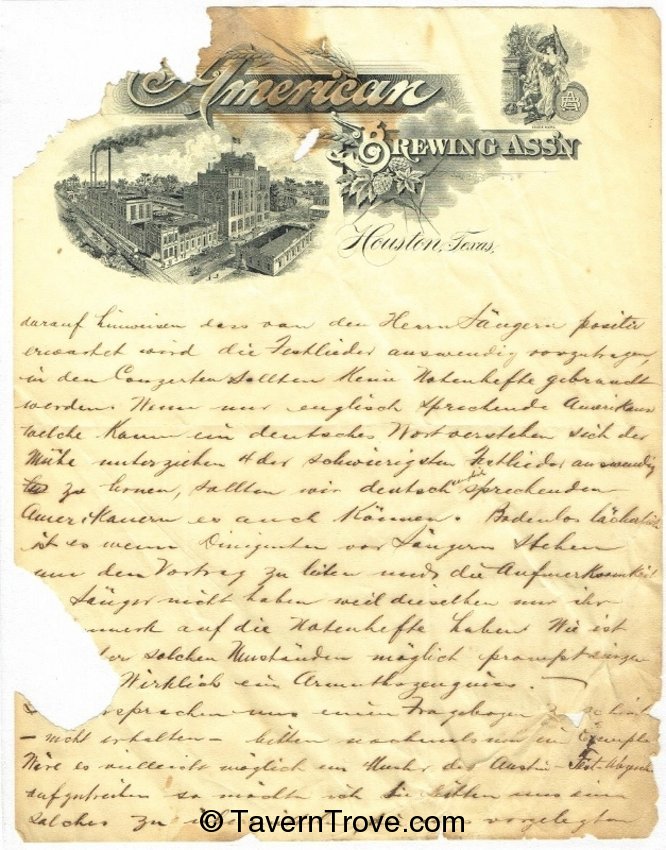 American
Brewing Ass'n
Houston, Texas,
darauf hinweisen dass von den Herrn Sängern positiv
erwartet wird die Festlieder auswendig vorzutragen
in den Conzerten sollten keine Notenhefte gebraucht
werden. Wenn nur englisch sprechende Amerikaner
welche kaum ein deutsches Wort verstehen sich der
Mühe unterziehen 4 der schwierigsten Festlieder auswendig
zu lernen, sollten wir deutsch sprechenden
Amerikanern es auch können. Bodenlos lächerlich
ist es wenn Dirigenten vor Sängern stehen
um den Vortrag zu leiten und die Aufmerksamkeit
Sänger nicht haben weil dieselben nur ihr
merk auf die Notenhefte haben. Wie ist
solchen Umständen möglich prompt
Wirklich ein Armuthszeugniss. —
sprachen uns einen Fragebogen zu
– nicht erhalten – bitten nochmals um ein Exemplar
Wäre es vielleicht möglich ein Muster der Austin - Fest-
aufzutreiben so möchte ich Sie bitten uns ein
solches zu vorgelegten
© TavernTrove.com